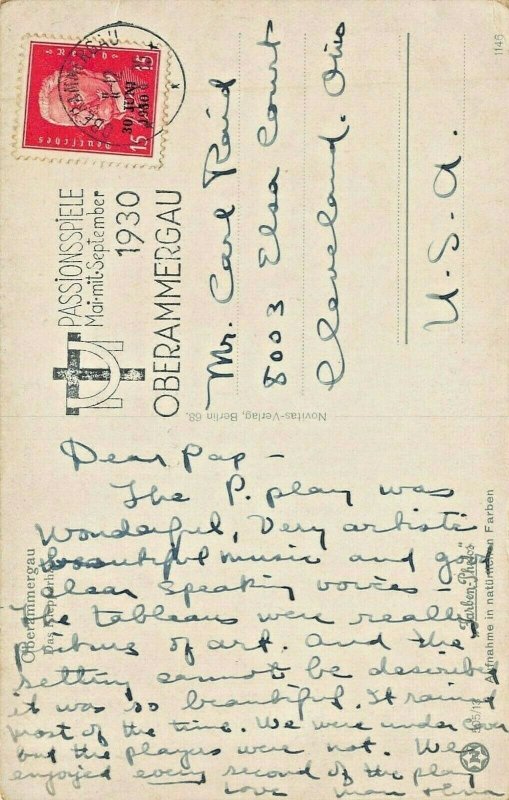 OBERAMMERGAU
30 JUNI
1930
15 15
Deutsches Reich
PASSIONSSPIELE
Mai-mit-September
1930
OBERAMMERGAU
1146
Mr. Carl Raid
8003 Elsa Court
Cleveland. Ohio
U.S.A.
Novitas-Verlag, Berlin 68.
Oberammergau
"Farben-Photos"
Aufnahme in natürlichen Farben
Dear Pap -
The P. play was
wonderful, Very artistic
beautiful music and good
clear speaking voices -
The tableaus were really
pictures of art. And the
setting cannot be described
it was so beautiful. It rained
most of the time. We were under cover
but the players were not. We
enjoyed every second of the play
Love Mam + Erna